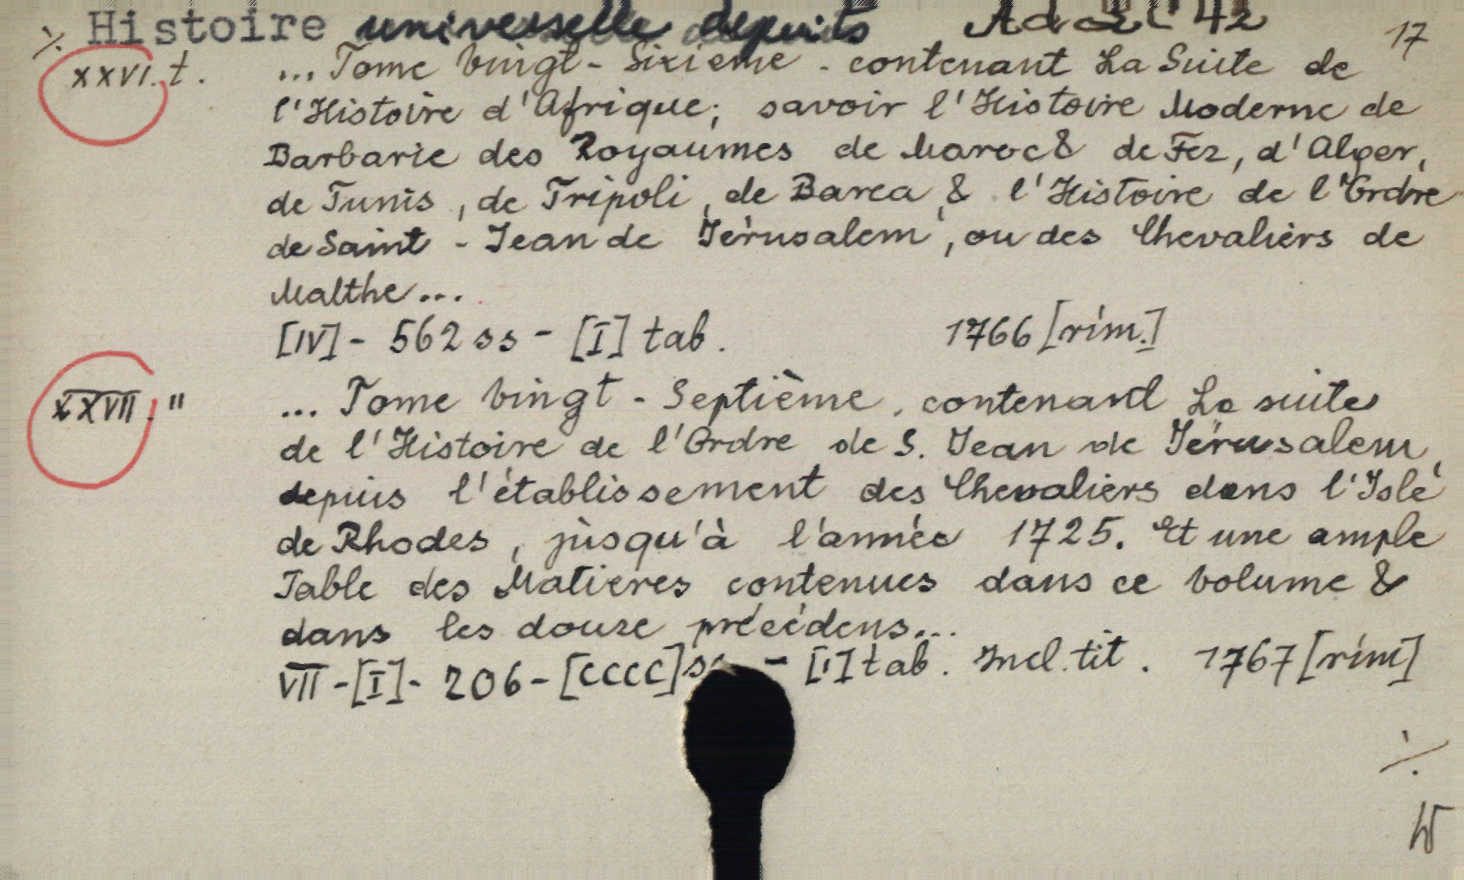 ·/. Histoire universelle depuis 42 17
XXVI. t. ... Tome vingt-Sixieme - contenant La Suite de
l'Histoire d'Afrique; savoir l'Histoire Moderne de
Barbarie des Royaumes de Maroc & de Fez, d'Alger,
de Tunis, de Tripoli, de Barca, & l'Histoire de l'Ordre
de Saint-Jean de Jérusalem, ou des Chevaliers de
Malthe...
[IV] - 562 ss - [I] tab. 1766 [rim.]
XXVII. " ... Tome vingt-Septième, contenant La suite
de l'Histoire de l'Ordre de S. Jean de Jérusalem,
depuis l'établissement des Chevaliers dans l'Isle
de Rhodes, jusqu'à l'année 1725. Et une ample
Table des Matieres contenues dans ce volume &
dans les douze précédens...
VII - [I] - 206 - [CCCC] ss - [I] tab. Incl. tit. 1767 [rim]
·/.